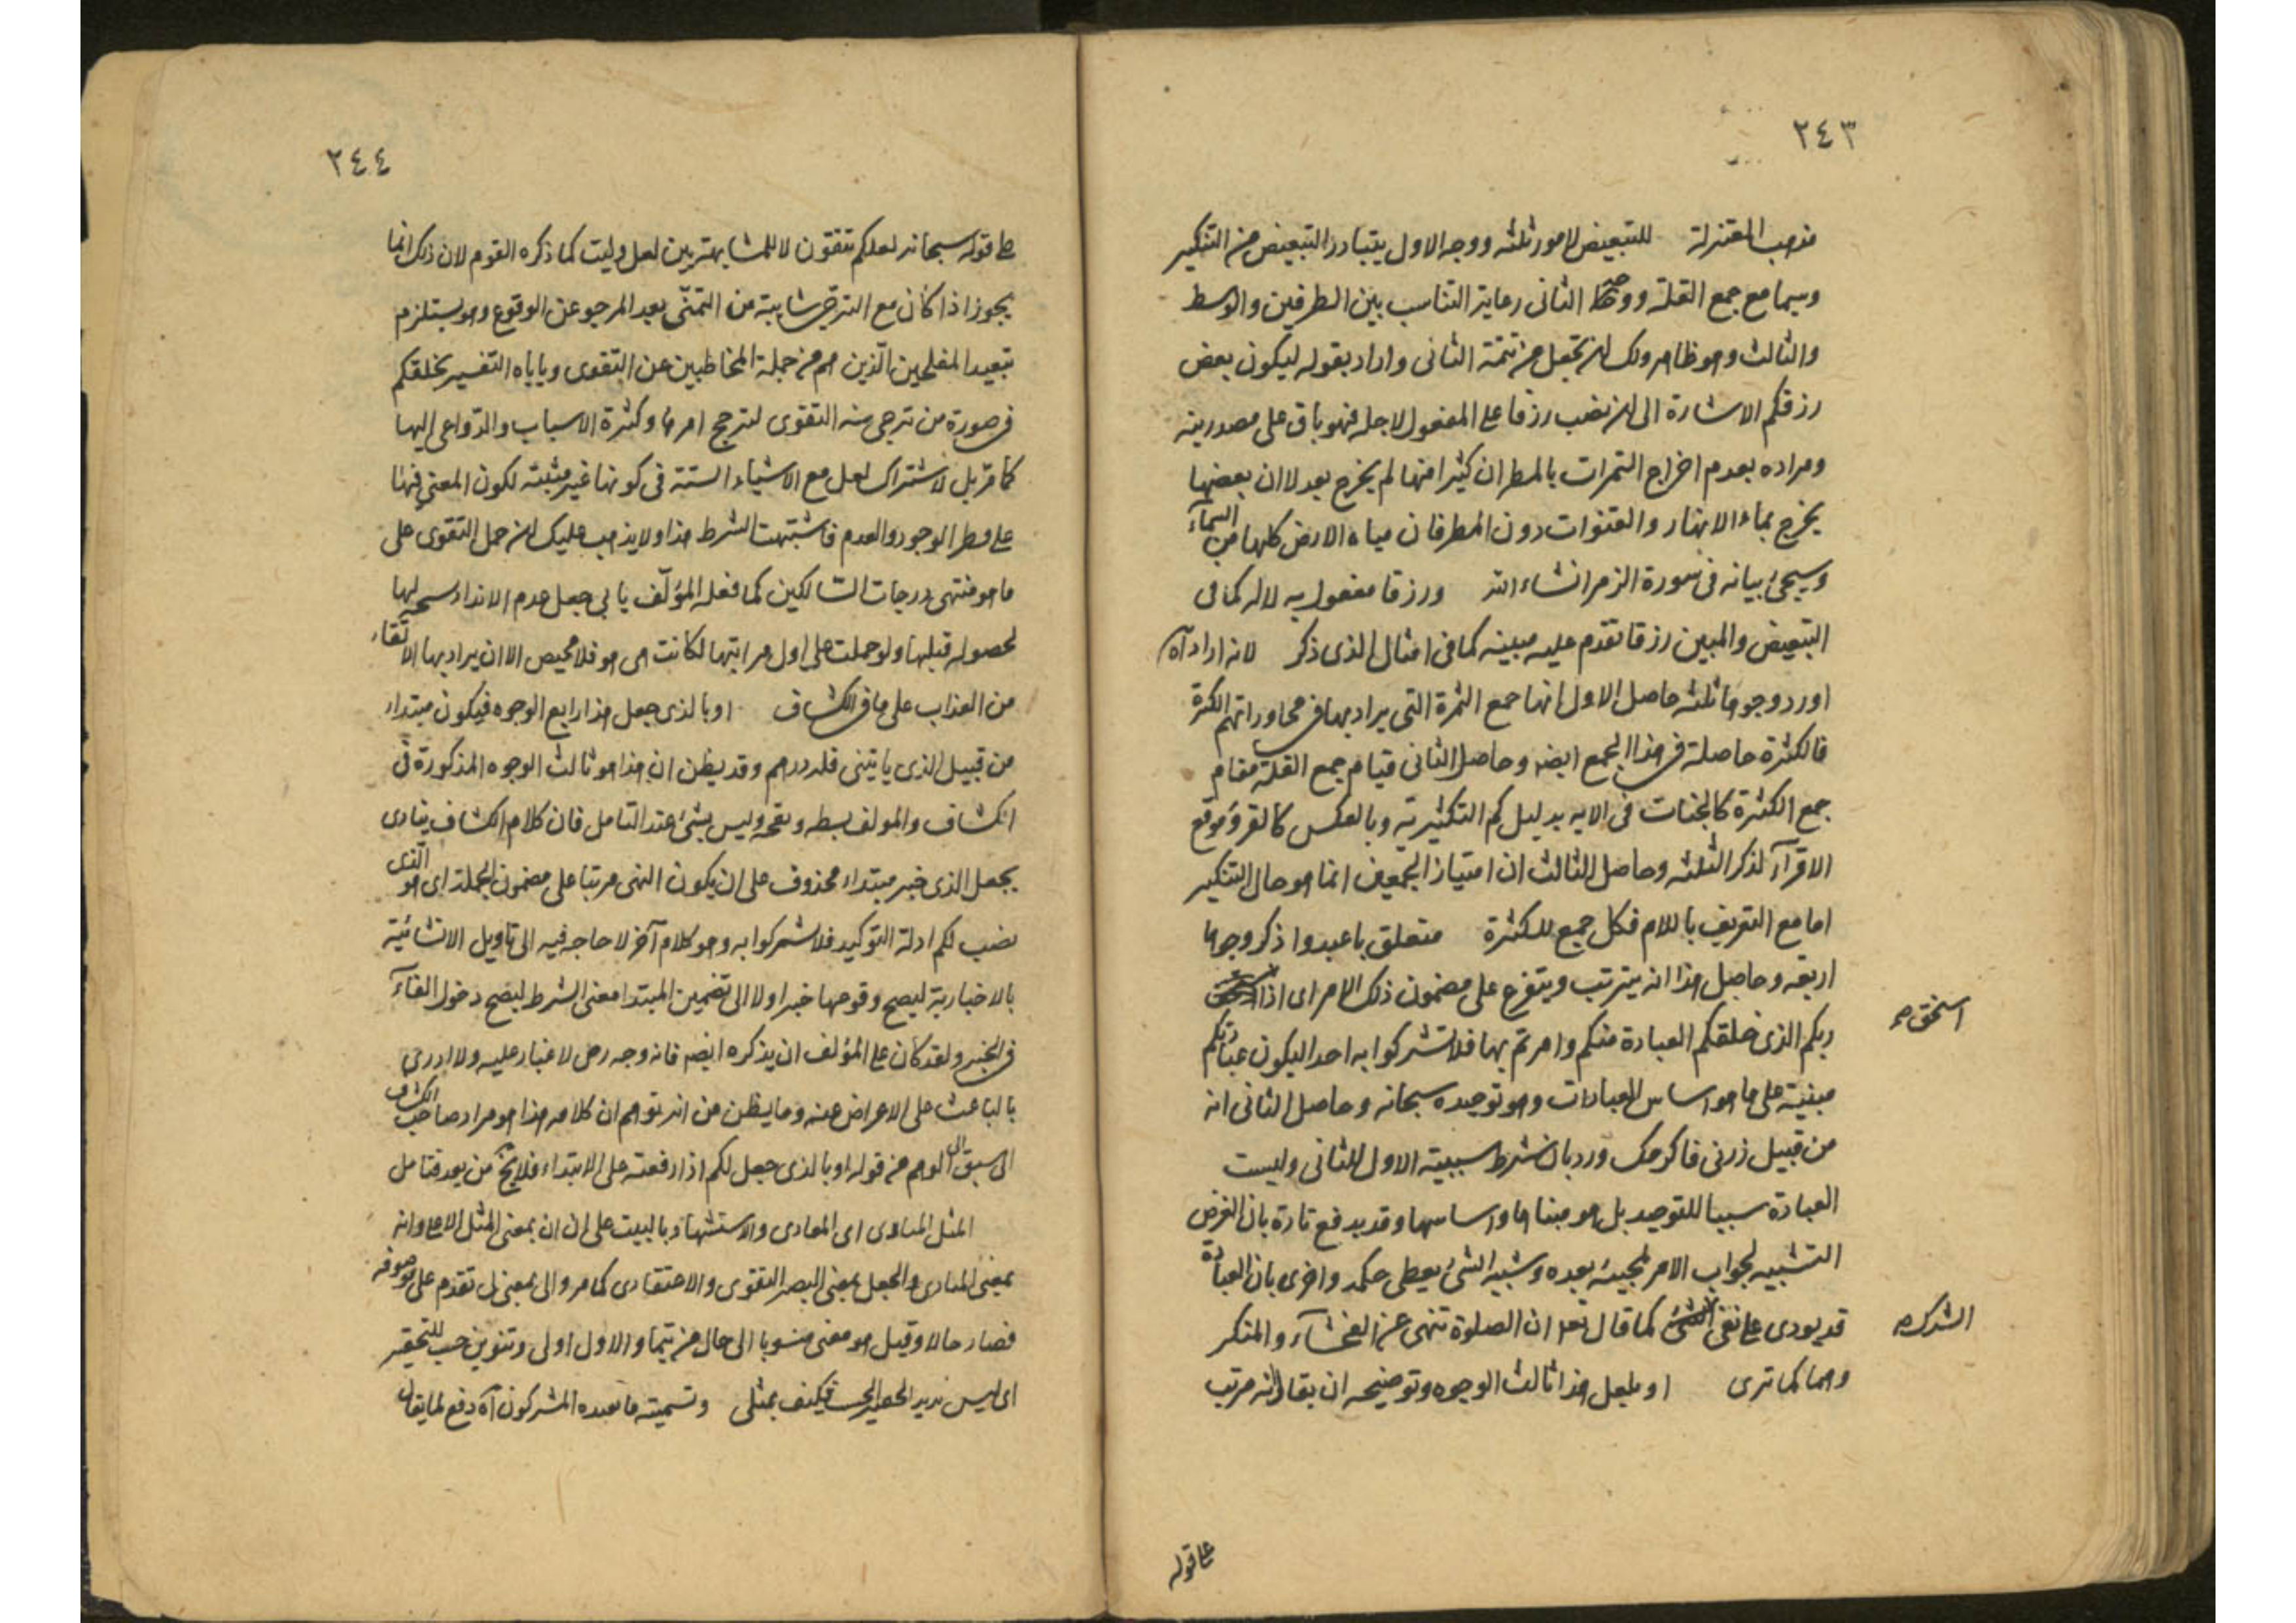 ٢٤٣
مذهب المعتزلة للتبعيض لامور ثلثه ووجه الاول يتبادر التبعيض من التنكير
وسيما مع جمع القلة ووجه الثانى رعاية التناسب بين الطرفين والوسط
والثالث وهو ظاهر ولك ان تجعل من تتمة الثانى واراد بقوله ليكون بعض
رزقكم الاشارة الى ان نصب رزقا على المفعول لاجله فهو باق على مصدريته
ومراده بعدم اخراج الثمرات بالمطر ان كثيرا منها لم يخرج بعد لا ان بعضها
يخرج بماء الانهار والقنوات دون المطر فان مياه الارض كلها من السماء
وسيجئ بيانه فى سورة الزمر انشاء الله ورزقا مفعول به لا له كما فى
التبعيض والمبين رزقا تقدم عليه مبينه كما فى المثال الذى ذكر لانه اراد آه
اورد وجوها ثلثه حاصل الاول انها جمع الثمرة التى يراد بها فى محاوراتهم الكثرة
فالكثرة حاصلة فى هذا الجمع ايضا وحاصل الثانى قيام جمع القلة مقام
جمع الكثرة كالجنات فى الايه بدليل كم التكثيرية وبالعكس كالقروء موقع
الاقرآء لذكر الثلثه وحاصل الثالث ان امتياز الجمعين انما هو حال التنكير
اما مع التعريف باللام فكل جمع للكثرة متعلق باعبدوا ذكر وجوها
اربعه وحاصل هذا انه يترتب ويتفرع على مضمون ذلك الامر اى اذا
استحق صح
ربكم الذى خلقكم العبادة منكم وامرتم بها فلا تشركوا به احدا ليكون عبادتكم
مبنية على ما هو اساس للعبادات وهو توحيده سبحانه وحاصل الثانى انه
من قبيل زرنى فاكرمك ورد بان شرطه سببية الاول للثانى وليست
العبادة سببا للتوحيد بل هو مبناها واساسها وقد يدفع تارة بان الغرض
التشبيه لجواب الامر لمجيئه بعده وشبيه الشئ يعطى حكمه واخرى بان العبادة
قد يودى على نفى كما قال تعالى ان الصلوة تنهى عن الفحشآء والمنكر
الشرك صح
وهما كما ترى او بلعل هذا ثالث الوجوه وتوضيحه ان يقال انه مرتب
على قوله
٢٤٤
على قوله سبحانه لعلكم تتقون لا للمشابهة بين لعل وليت كما ذكره القوم لان ذلك انما
يجوز اذا كان مع الترجى شايبة من التمنّى بعيد المرجو عن الوقوع وهو يستلزم
تبعيد المفلحين الذين هم من جملة المخاطبين عن التقوى وياباه التفسير بخلقكم
فى صورة من ترجى منه التقوى لترجح امرها وكثرة الاسباب والدّواعى اليها
كما مر بل لاشتراك لعل مع الاشياء الستة فى كونها غير مثبتة لكون المعنى فيها
على خطر الوجود والعدم فاشبهت الشرط هذا ولا يذهب عليك ان حمل التقوى على
ما هو منتهى درجات السّالكين كما فعله المؤلّف يابى جعل عدم الانداد لها
لحصوله قبلها ولو حملت على اول مراتبها لكانت هى هو فلا محيص الا ان يراد بها الاتقاء
من العذاب على ما فى الكشاف او بالذى جعل هذا رابع الوجوه فيكون مبتداء
من قبيل الذى ياتينى فله درهم وقد يظن ان هذا هو ثالث الوجوه المذكورة فى
الكشاف والمولف بسطه ونقحه وليس بشئ عند التامل فان كلام الكشاف ينادى
بجعل الذى خبر مبتداء محذوف على ان يكون النهى مرتبا على مضمون الجملة اى هو الذى
نصب لكم ادلة التوكيد فلا تشركوا به وهو كلام آخر لا حاجه فيه الى تاويل الانشائية
بالاخبارية ليصح وقوعها خبرا ولا الى تضمين المبتدا معنى الشرط ليصح دخول الفاء
فى الخبر ولقد كان على المؤلف ان يذكره ايضا فانه وجه رصين لا غبار عليه ولا ادرى
بالباعث على الاعراض عنه وما يظن من انه توهم ان كلامه هذا هو مراد صاحب الكشاف
الى الوهم من قوله او بالذى جعل لكم اذا رفعته على الابتداء فلا يخ من بعد فتامل
المثل المناوى اى المعادى والاستشهاد بالبيت على ان بمعنى المثل الاعلى وانه
بمعنى المنادى والجعل بمعنى التصيير القولى والاعتقادى كما مر والى بمعنى لى تقدم على موصوفه
فصار حالا وقيل هو معنى منسوبا الى حال من تيما والاول اولى وتنوين حسب للتحقير
اى ليس نديد الحقير الحسب فكيف بمثلى وتسمية ما يعبده المشركون آه دفع لما يقال